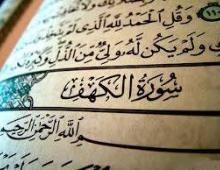 ١١٠ وَقُلِ الْحَمْدُ لِلَّهِ الَّذِي
وَلَمْ يَكُن لَّهُ وَلِيٌّ مِّنَ الذُّلِّ وَكَبِّرْهُ
سُورَةُ الْكَهْفِ
بِسْمِ اللَّهِ الرَّحْمَٰنِ الرَّحِيمِ